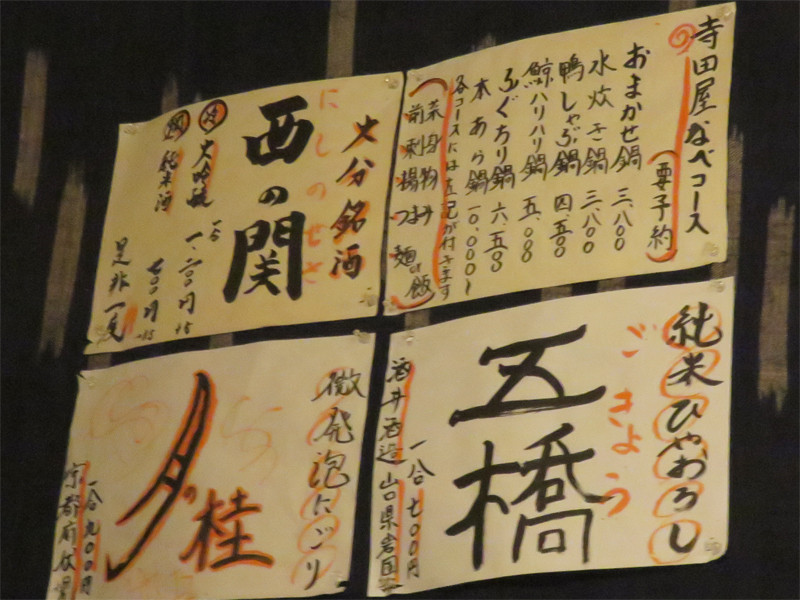 寺田屋なべコース
(要予約)
おまかせ鍋 三、八〇〇
水炊き鍋 三、八〇〇
鴨しゃぶ鍋 四、五〇〇
鯨ハリハリ鍋 五、五〇〇
ふぐちり鍋 六、五〇〇
本あら鍋 一〇、〇〇〇〜
各コースには左記が付きます
前菜 刺身 揚物 つまみ 麺or飯
大分銘酒
にしのせき
西の関
大吟醸 一合 一、二〇〇円
純米酒 七〇〇円
是非一度
純米ひやおろし
ごきょう
五橋
一合 七〇〇円
酒井酒造 山口県岩国
微発泡にごり
月の桂
一合 九〇〇円
京都府伏見